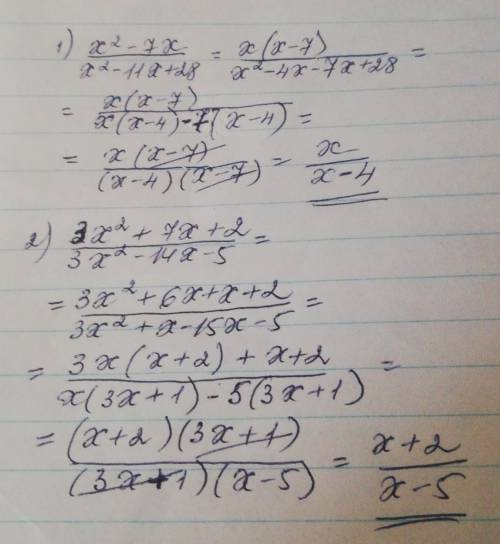 1) x² - 7x / x² - 11x + 28 = x(x - 7) / x² - 4x - 7x + 28 =
= x(x - 7) / x(x - 4) - 7(x - 4) =
= x(x - 7) / (x - 4)(x - 7) = x / x - 4
2) 3x² + 7x + 2 / 3x² - 14x - 5 =
= 3x² + 6x + x + 2 / 3x² + x - 15x - 5 =
= 3x(x + 2) + x + 2 / x(3x + 1) - 5(3x + 1) =
= (x + 2)(3x + 1) / (3x + 1)(x - 5) = x + 2 / x - 5